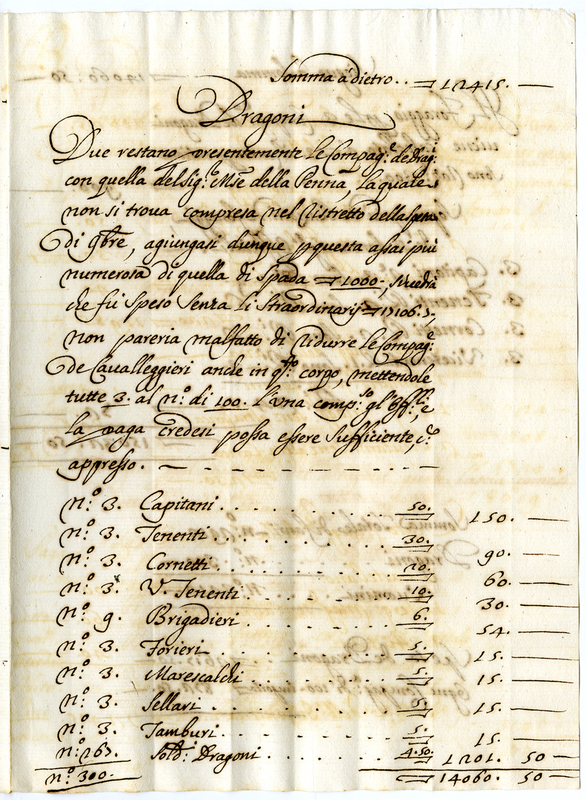 Somma a dietro . . = 12415. —
Dragoni
Due restano presentemente le Compag.e de Drag:
con quella del Sig.e M.se della Penna, la quale
non si trova compresa nel ristretto della spesa
di 9bre, agiungasi dunque p questa assai più
numerosa di quella di Spada = 1000-, si vedrà
che fù speso senza li straordinarij =
non pareria malfatto di ridurre le Compag.e
de Cavalleggieri anche in q.sto corpo, mettendole
tutte 3. al n.o di 100. l'una comp.si gl'Off.li, e
la paga credesi possa essere sufficiente,
appresso. — - - - - - - - -
n.o 3. Capitani . . . . . . . 50. 150. —
n.o 3. Tenenti . . . . . . . 30. 90. —
n.o 3. Cornetti . . . . . . . 20. 60. —
n.o 3. V. Tenenti . . . . . . . 10. 30. —
n.o 9. Brigadieri . . . . . . . 6. 54. —
n.o 3. Forieri . . . . . . . 5. 15. —
n.o 3. Marescalchi . . . . . . . 5. 15. —
n.o 3. Sellari . . . . . . . 5. 15. —
n.o 3. Tamburi . . . . . . . 5. 15. —
n.o 267. Sold: Dragoni . . . . . . . 4.50. 1201. 50 —
n.o 300. = 14060. 50 —